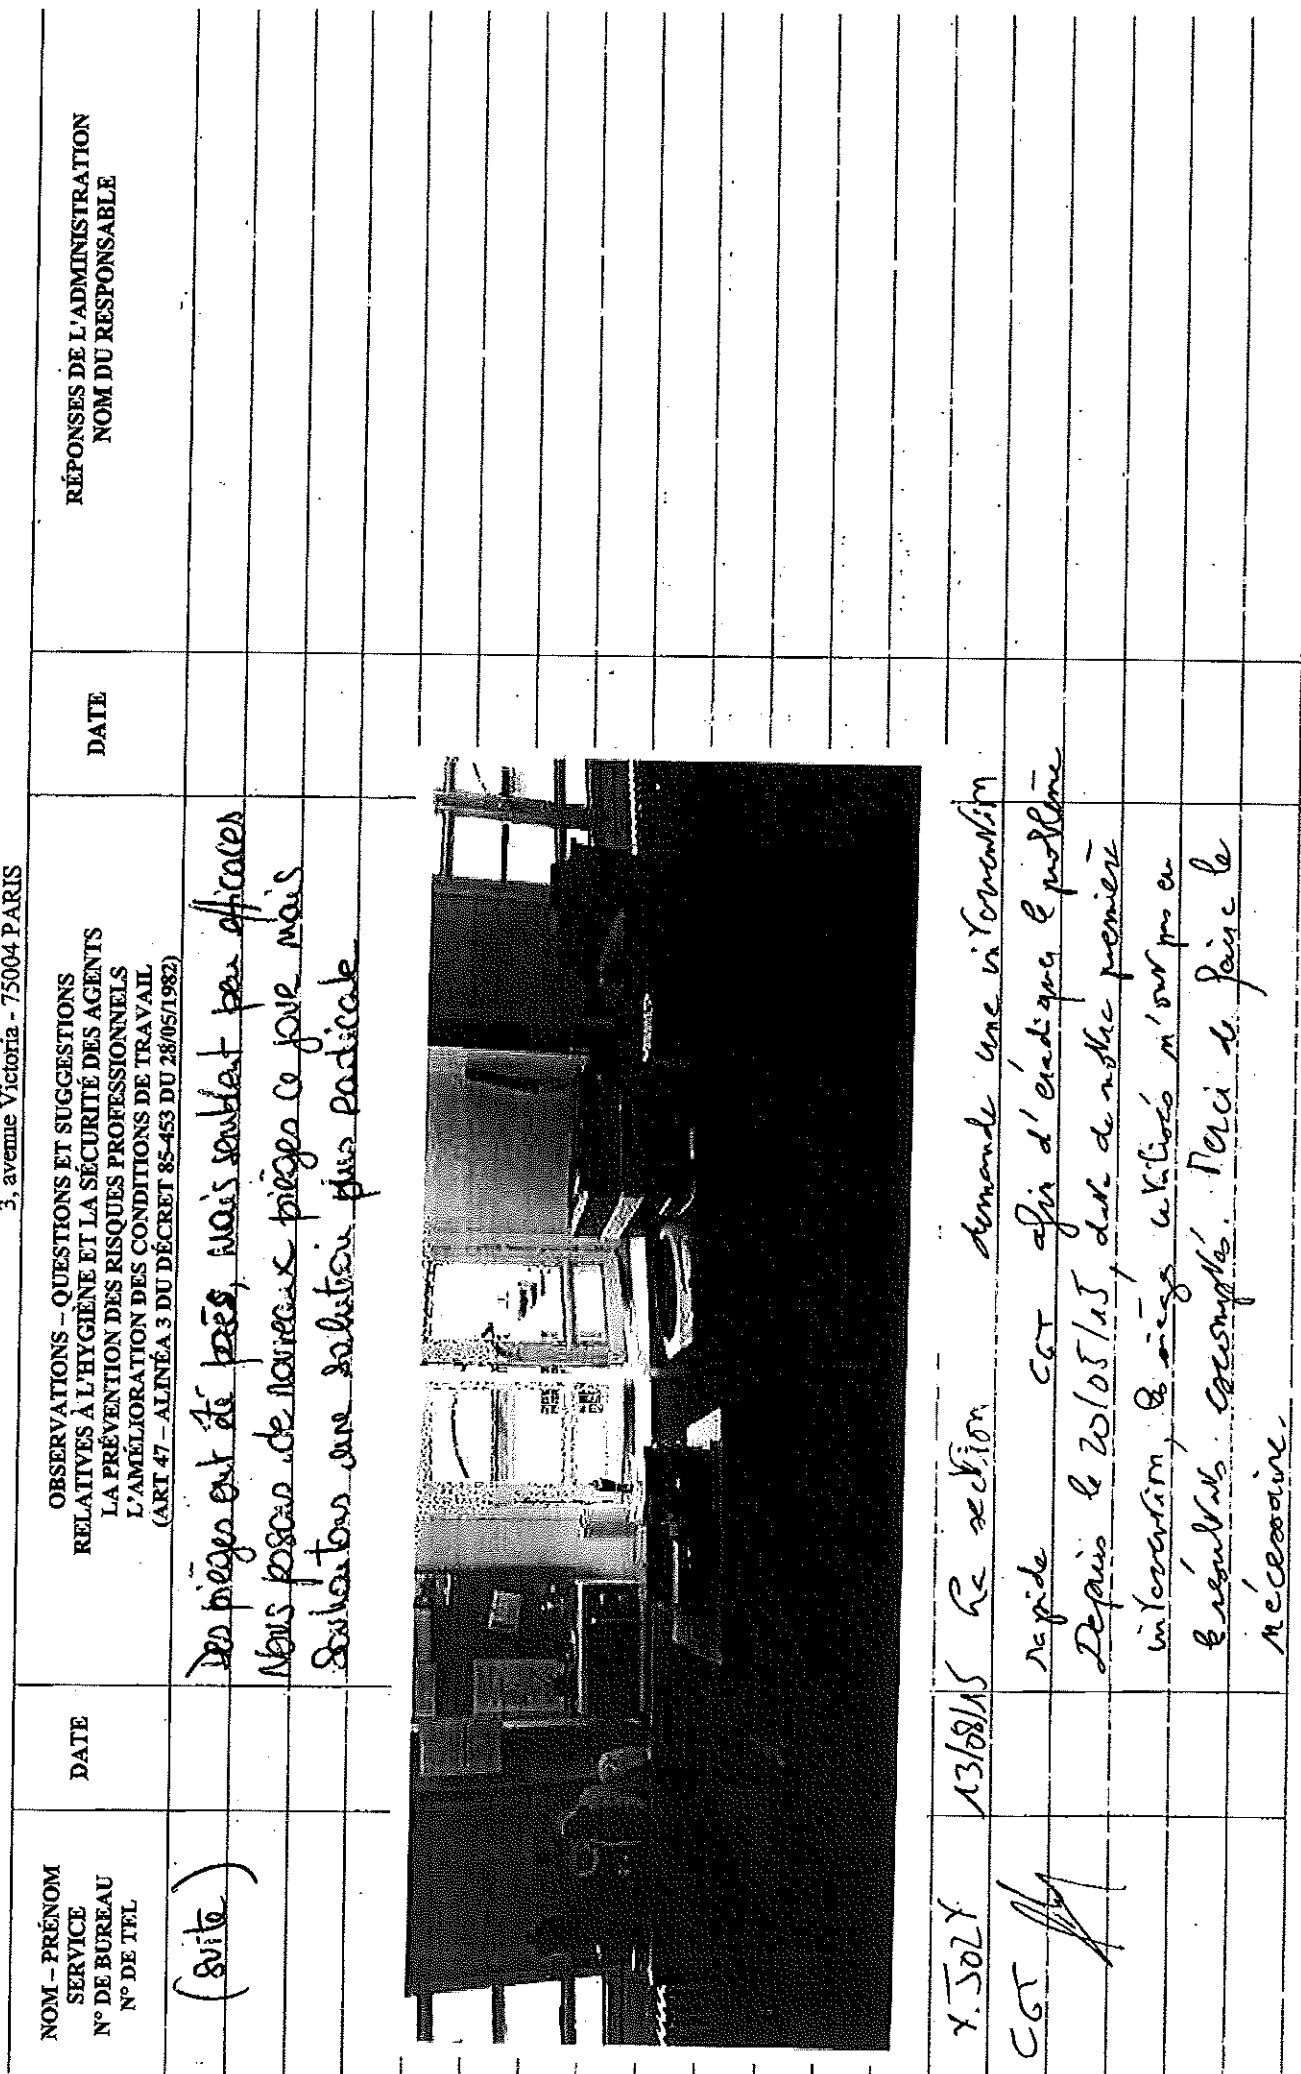 3, avenue Victoria - 75004 PARIS
NOM – PRÉNOM
SERVICE
N° DE BUREAU
N° DE TEL
DATE
OBSERVATIONS – QUESTIONS ET SUGGESTIONS
RELATIVES À L'HYGIÈNE ET LA SÉCURITÉ DES AGENTS
LA PRÉVENTION DES RISQUES PROFESSIONNELS
L'AMÉLIORATION DES CONDITIONS DE TRAVAIL
(ART 47 – ALINÉA 3 DU DÉCRET 85-453 DU 28/05/1982)
DATE
RÉPONSES DE L'ADMINISTRATION
NOM DU RESPONSABLE
(suite)
Des pièges ont été posés, mais semblent peu efficaces
Nous posons de nouveaux pièges ce jour mais
souhaitons une solution plus radicale
Y. JOLY 13/08/15 La section demande une intervention
CGT rapide CGT afin d'éradiquer le problème
Depuis le 20/05/15, date de notre première
intervention, les pièges utilisés n'ont pas eu
le résultats escomptés. Merci de faire le
nécessaire.